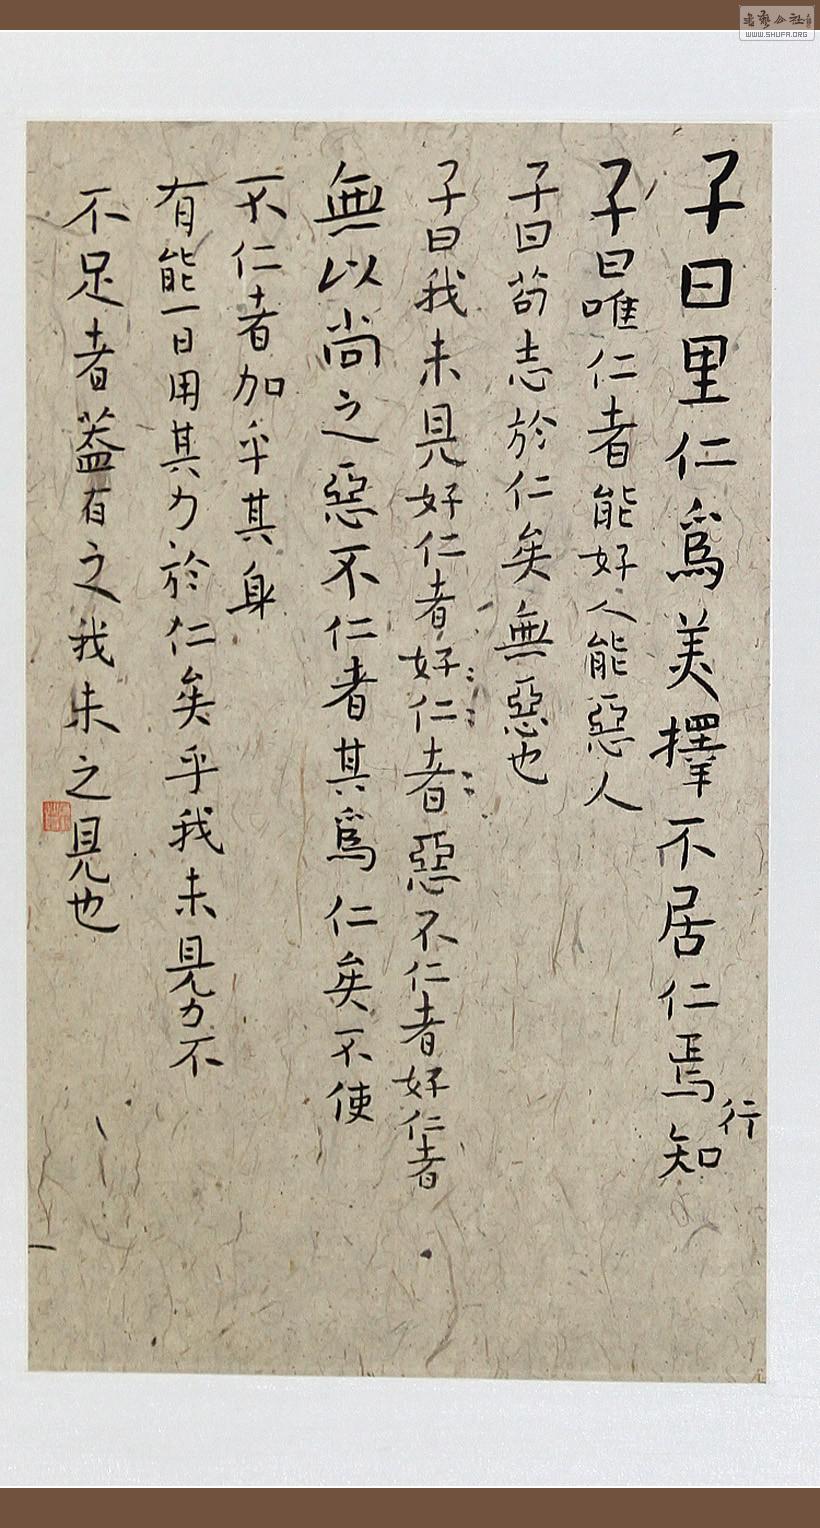 子曰里仁爲美擇不居仁焉知
行
子曰唯仁者能好人能惡人
子曰苟志於仁矣無惡也
子曰我未見好仁者好仁者惡不仁者好仁者
無以尚之惡不仁者其爲仁矣不使
不仁者加乎其身
有能一日用其力於仁矣乎我未見力不
不足者蓋有之我未之見也
WWW.SHUFA.ORG